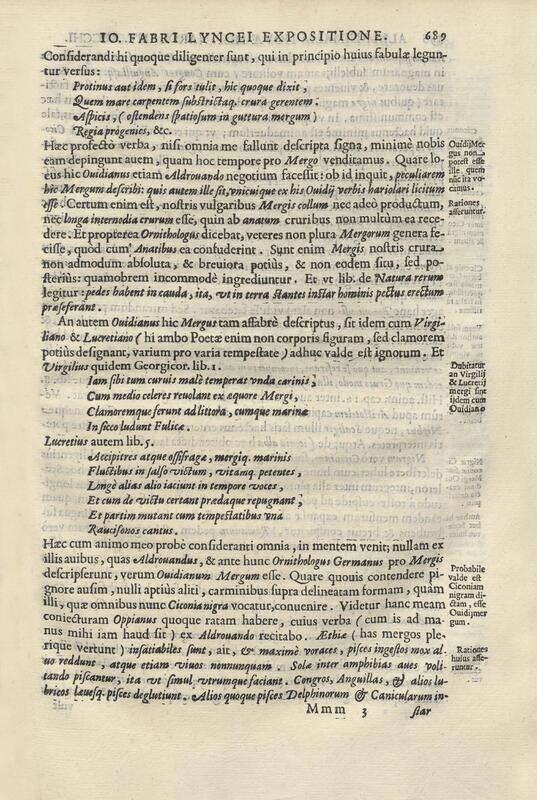 IO. FABRI LYNCEI EXPOSITIONE. 689
Considerandi hi quoque diligenter sunt, qui in principio huius fabulæ legun-
tur versus:
Protinus aut idem, si fors tulit, hic quoque dixit,
Quem mare carpentem substrictaq. crura gerentem.
Aspicis, (ostendens spatiosum in guttura mergum)
Regia progenies, &c.
Hæc profectò verba, nisi omnia me fallunt descripta signa, minimè nobis
eam depingunt auem, quam hoc tempore pro Mergo venditamus. Quare lo-
cus hic Ouidianus etiam Aldrouando negotium facessit: ob id inquit, peculiarem
hîc Mergum describi: quis autem ille sit, vnicuique ex his Ouidij verbis hariolari licitum
esse. Certum enim est, nostris vulgaribus Mergis collum nec adeò productum,
nec longa internodia crurum esse, quin ab anatum cruribus non multùm ea rece-
dere. Et propterea Ornithologus dicebat, veteres non plura Mergorum genera fe-
cisse, quòd cum Anatibus ea confuderint. Sunt enim Mergis nostris crura
non admodum absoluta, & breuiora potiùs, & non eodem situ, sed po-
steriùs: quamobrem incommodè ingrediuntur. Et vt lib. de Natura rerum
legitur: pedes habent in cauda, ita, vt in terra stantes instar hominis pectus erectum
præseferant.
An autem Ouidianus hic Mergus tam affabrè descriptus, sit idem cum Virgi-
liano & Lucretiano (hi ambo Poetæ enim non corporis figuram, sed clamorem
potiùs designant, varium pro varia tempestate) adhuc valde est ignotum. Et
Virgilius quidem Georgicor. lib. 1.
Iam sibi tum curuis malè temperat vnda carinis,
Cum medio celeres reuolant ex æquore Mergi,
Clamoremque ferunt ad littora, cumque marinæ
In sicco ludunt Fulicæ.
Lucretius autem lib. 5.
Accipitres atque ossifragæ, mergiq. marinis
Fluctibus in salso victum, vitamq. petentes,
Longè alias alio iaciunt in tempore voces,
Et cum de victu certant prædaque repugnant,
Et partim mutant cum tempestatibus vna
Raucisonos cantus.
Hæc cum animo meo probè consideranti omnia, in mentem venit; nullam ex
illis auibus, quas Aldrouandus, & ante hunc Ornithologus Germanus pro Mergis
descripserunt, verum Ouidianum Mergum esse. Quare quouis contendere pi-
gnore ausim, nulli aptiùs aliti, carminibus supra delineatam formam, quàm
illi, quæ omnibus nunc Ciconia nigra vocatur, conuenire. Videtur hanc meam
coniecturam Oppianus quoque ratam habere, cuius verba (cum is ad ma-
nus mihi iam haud sit) ex Aldrouando recitabo. Æthiæ (has mergos ple-
rique vertunt) insatiabiles sunt, ait, & maximè voraces, pisces ingestos mox al-
uo reddunt, atque etiam viuos nonnunquam. Solæ inter amphibias aues voli-
tando piscantur, ita vt simul vtrumque faciant. Congros, Anguillas, & alios lu-
bricos læuesq. pisces deglutiunt. Alios quoque pisces Delphinorum & Canicularum in-
Mmm 3 star
Ouidij Mer-
gus non
potest esse
ille quem
nũc ita vo-
camus.
Rationes
asseruntur.
Dubitatur
an Virgilij
& Lucretij
mergi sint
ijdem cum
Ouidiano
Probabile
valde est
Ciconiam
nigram di-
ctam, esse
Ouidij mer
gum.
Rationes
huius asse-
runtur.